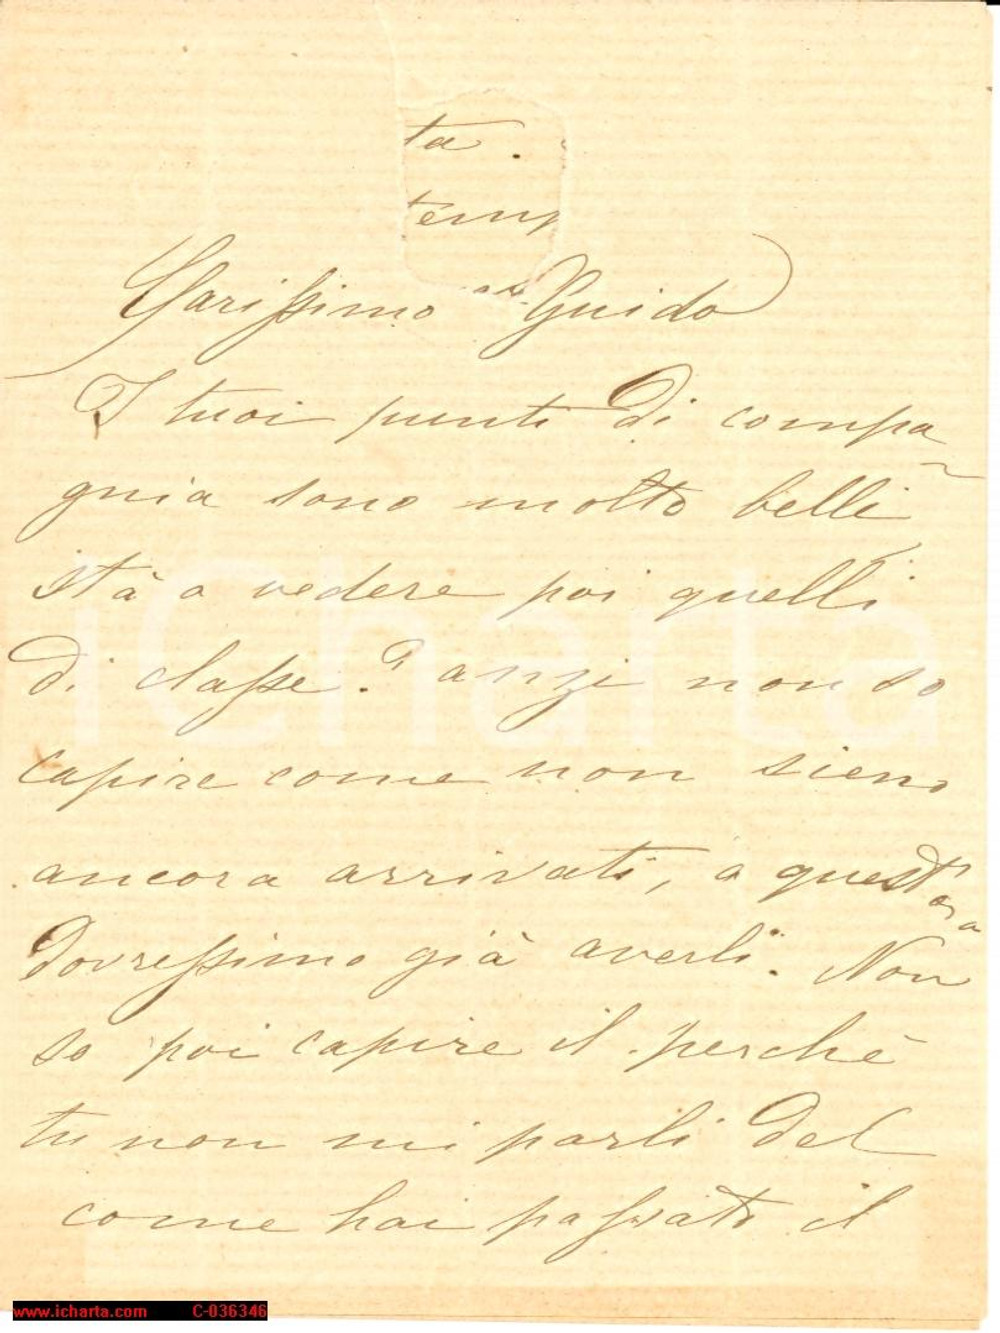 ta.
temp
Carissimo Guido
I tuoi punti di compa
gnia sono molto belli
stà a vedere poi quelli
di classe? anzi non so
capire come non sieno
ancora arrivati, a quest'ora
dovressimo già averli. Non
so poi capire il perchè
tu non mi parli del
come hai passato il
iCharta
www.icharta.com C-036346